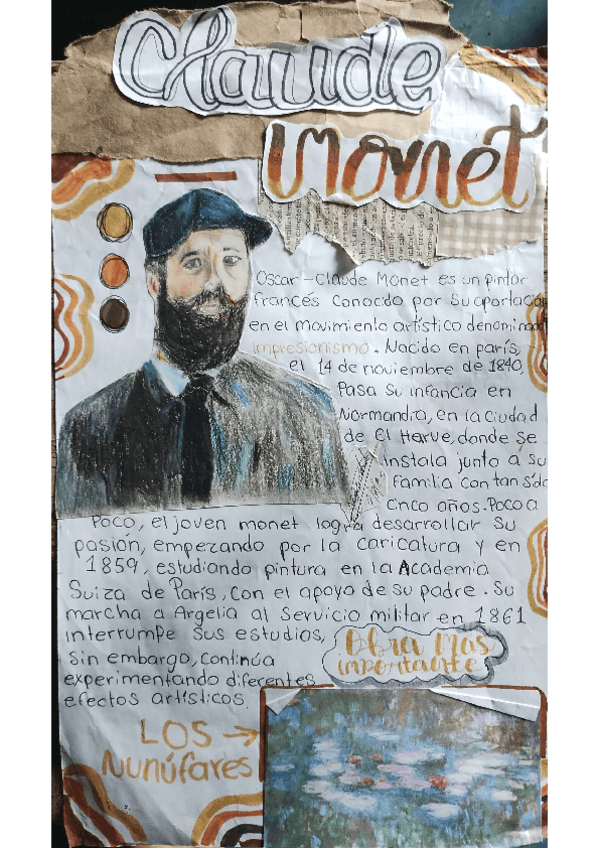 Claude
Monet
Oscar-Claude Monet es un pintor
francés conocido por su aportación
en el movimiento artístico denominado
impresionismo. Nacido en parís,
el 14 de noviembre de 1840,
Pasa su infancia en
Normandia, en la ciudad
de El Harve, donde se
instala junto a su
familia con tan sólo
cinco años. Poco a
Poco, el joven monet logra desarrollar su
pasión, empezando por la caricatura y en
1859, estudiando pintura en la Academia
Suiza de París, con el apoyo de su padre. Su
marcha a Argelia al servicio militar en 1861
interrumpe sus estudios,
Sin embargo, continúa
experimentando diferentes
efectos artísticos.
Obra mas
importante
LOS →
Nunúfares